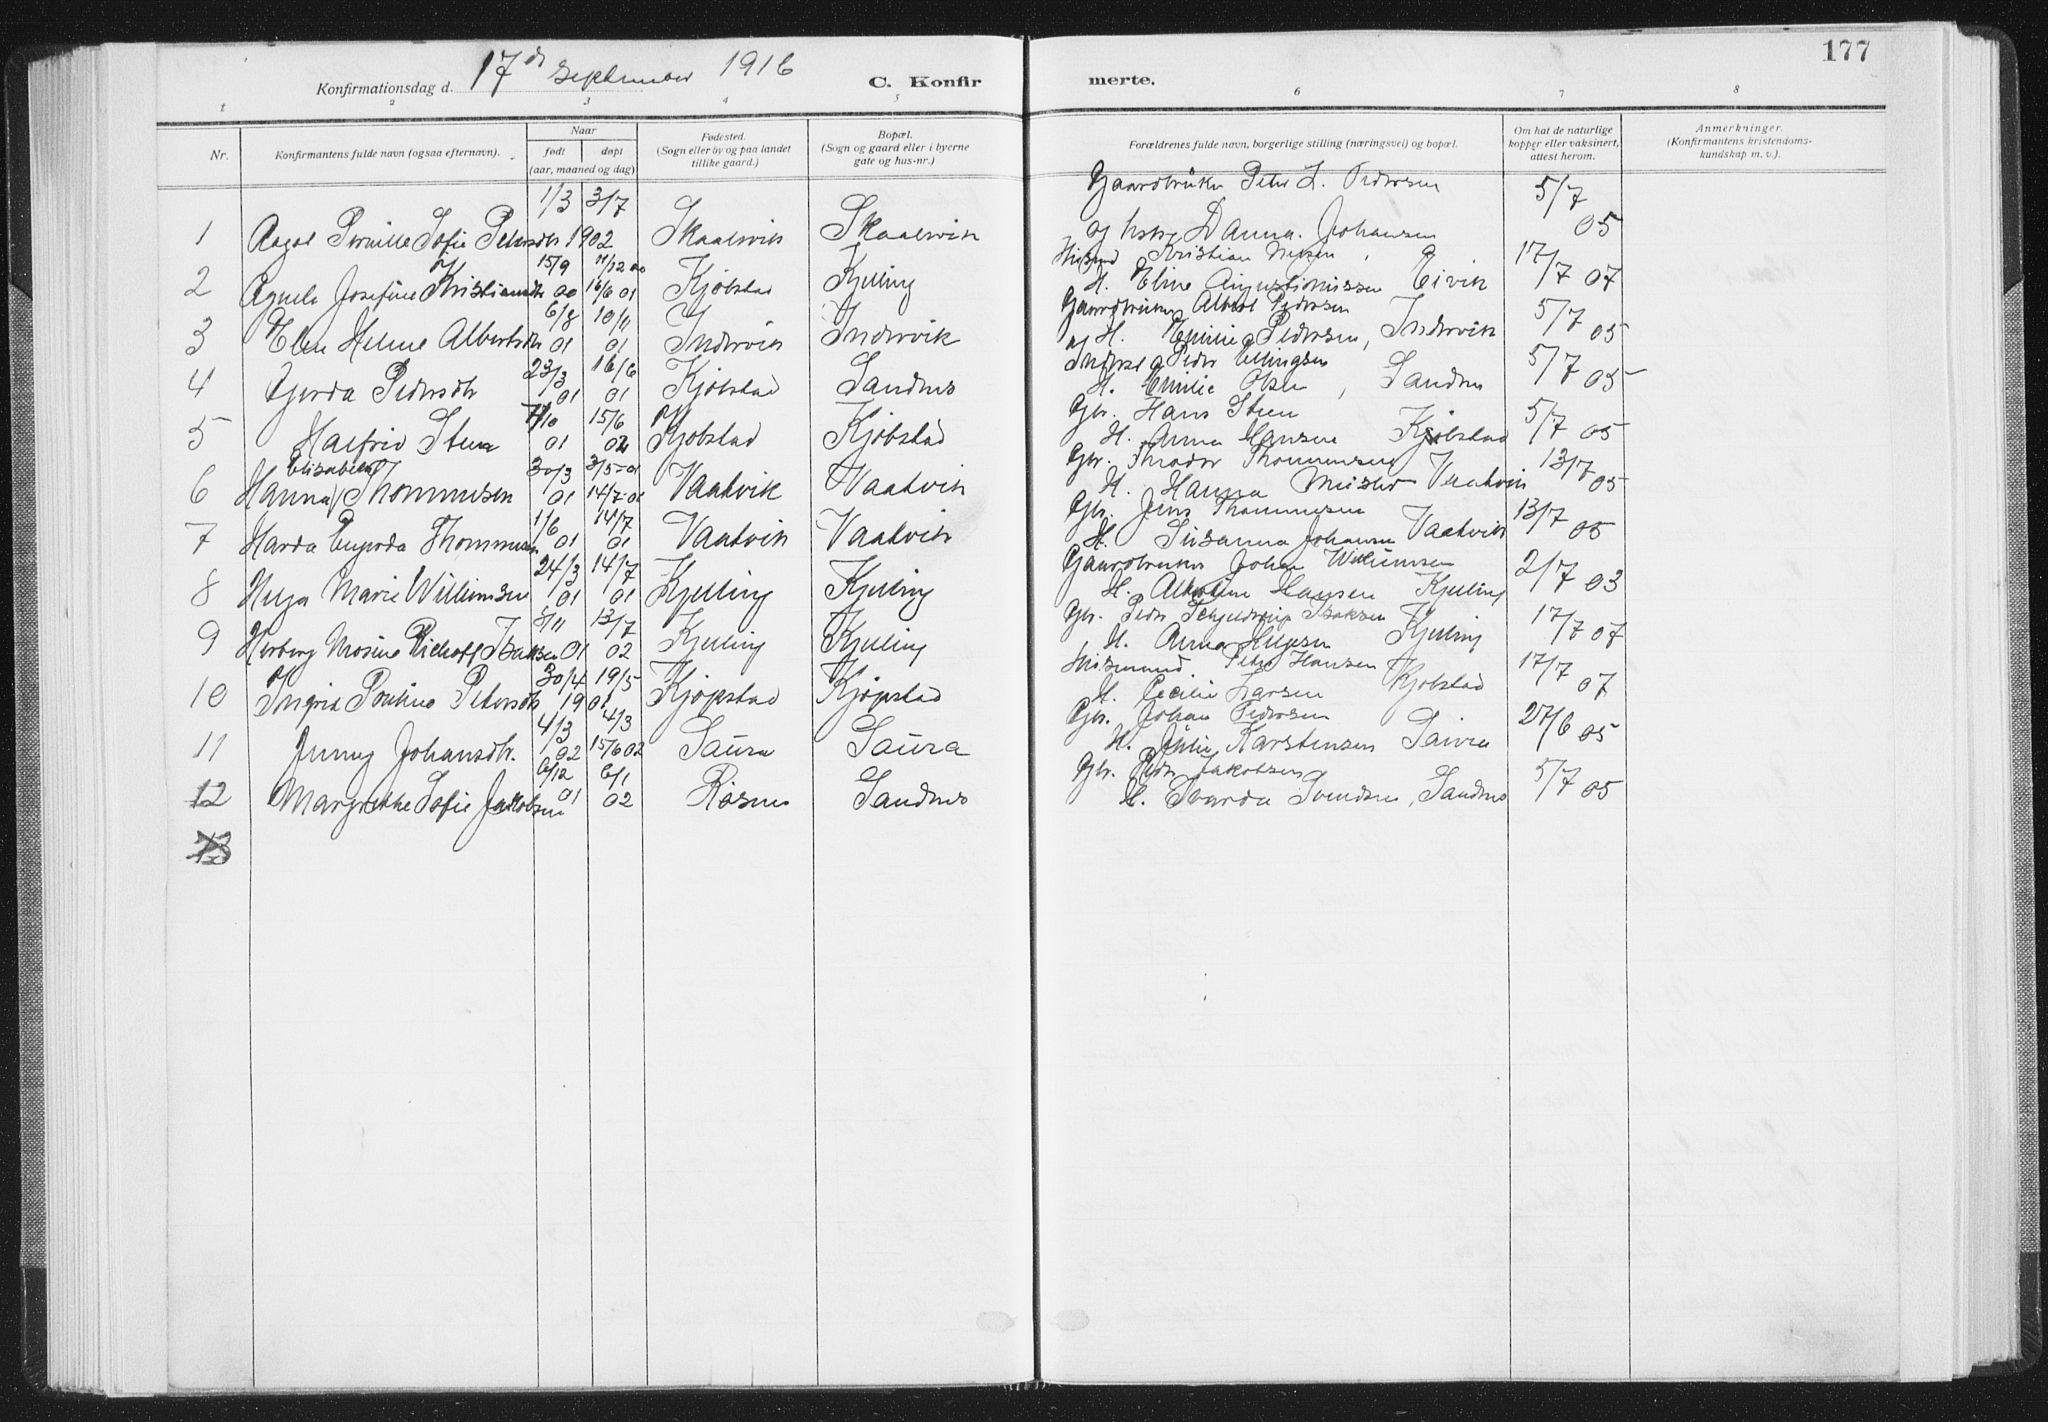 177
Konfirmationsdag d. 17de September 1916 C. Konfir merte.
1 2 3 4 5 6 7 8
Nr. Konfirmantens fulde navn (ogsaa efternavn). Naar født døpt (aar, maaned og dag) Fødested. (Sogn eller by og paa landet tillike gaard.) Bopæl. (Sogn og gaard eller i byerne gate og hus-nr.) Forældrenes fulde navn, borgerlige stilling (næringsvei) og bopæl. Om hat de naturlige kopper eller vaksinert, attest herom. Anmerkninger. (Konfirmantens kristendoms-kundskap m. v.).
1/3 3/7 Gaardbruker Peter L. Pedersen 5/7
1 Aagot Pernille Sofie Petersdtr 1902 Skaalsvik Skaalsvik og Danna Johansen 05
15/9 11/12 00 Kristian 17/7
2 Josefine Kristiansdtr 00 16/6 01 Kjøbstad Kjelling H. Eline Augustinussen Eivik 07
6/8 10/11 Gaardbruker Albert Pedersen 5/7
3 Elen Helene Albertsdtr 01 01 Indervik Indervik og H. Emilie Pedersen, Indervik 05
23/3 16/6 Inderst Peder Ellingsen 5/7
4 Gjerda Pedersdtr 01 01 Kjøbstad Sandnes H. Emilie Olsen, Sandnes 05
7/10 15/6 Gbr. Hans Steen 5/7
5 Halfrid Steen 01 02 Kjøbstad Kjøbstad H. Anna Hansen Kjøbstad 05
Elisabeth 30/3 3/5-01 Gbr. Thommesen 13/7
6 Hanna Thommesen 01 14/7-01 Vaatvik Vaatvik H. Hanna Meisler Vaatvik 05
1/6 14/7 Gbr. Jens Thommesen 13/7
7 Harda Thommesen 01 01 Vaatvik Vaatvik H. Susanna Johansen Vaatvik 05
24/3 14/7 Gaardbruker Johan Willumsen 2/7
8 Marie Willumsen 01 01 Kjelling Kjelling H. Hansen Kjelling 03
8/11 13/7 Gbr. Peder Schjelderup Isaksen 17/7
9 Herborg Mosine Richoff Isaksen 01 02 Kjelling Kjelling H. Anna Kjelling 07
30/4 19/5 Peter Hansen 17/7
10 Ingrid Pauline Petersdtr 1901 Kjøpstad Kjøpstad H. Cecilie Larsen Kjøbstad 07
4/3 4/3 Gbr. Johan Pedersen 27/6
11 Jenny Johansdtr. 02 15/6 02 Saura Saura H. Julie Karstensen Saura 05
6/12 6/1 Gbr. Peder Jakobsen 5/7
12 Margrethe Sofie Jakobsen 01 02 Røsnes Sandnes H. Svarda Svendsen, Sandnes 05
13